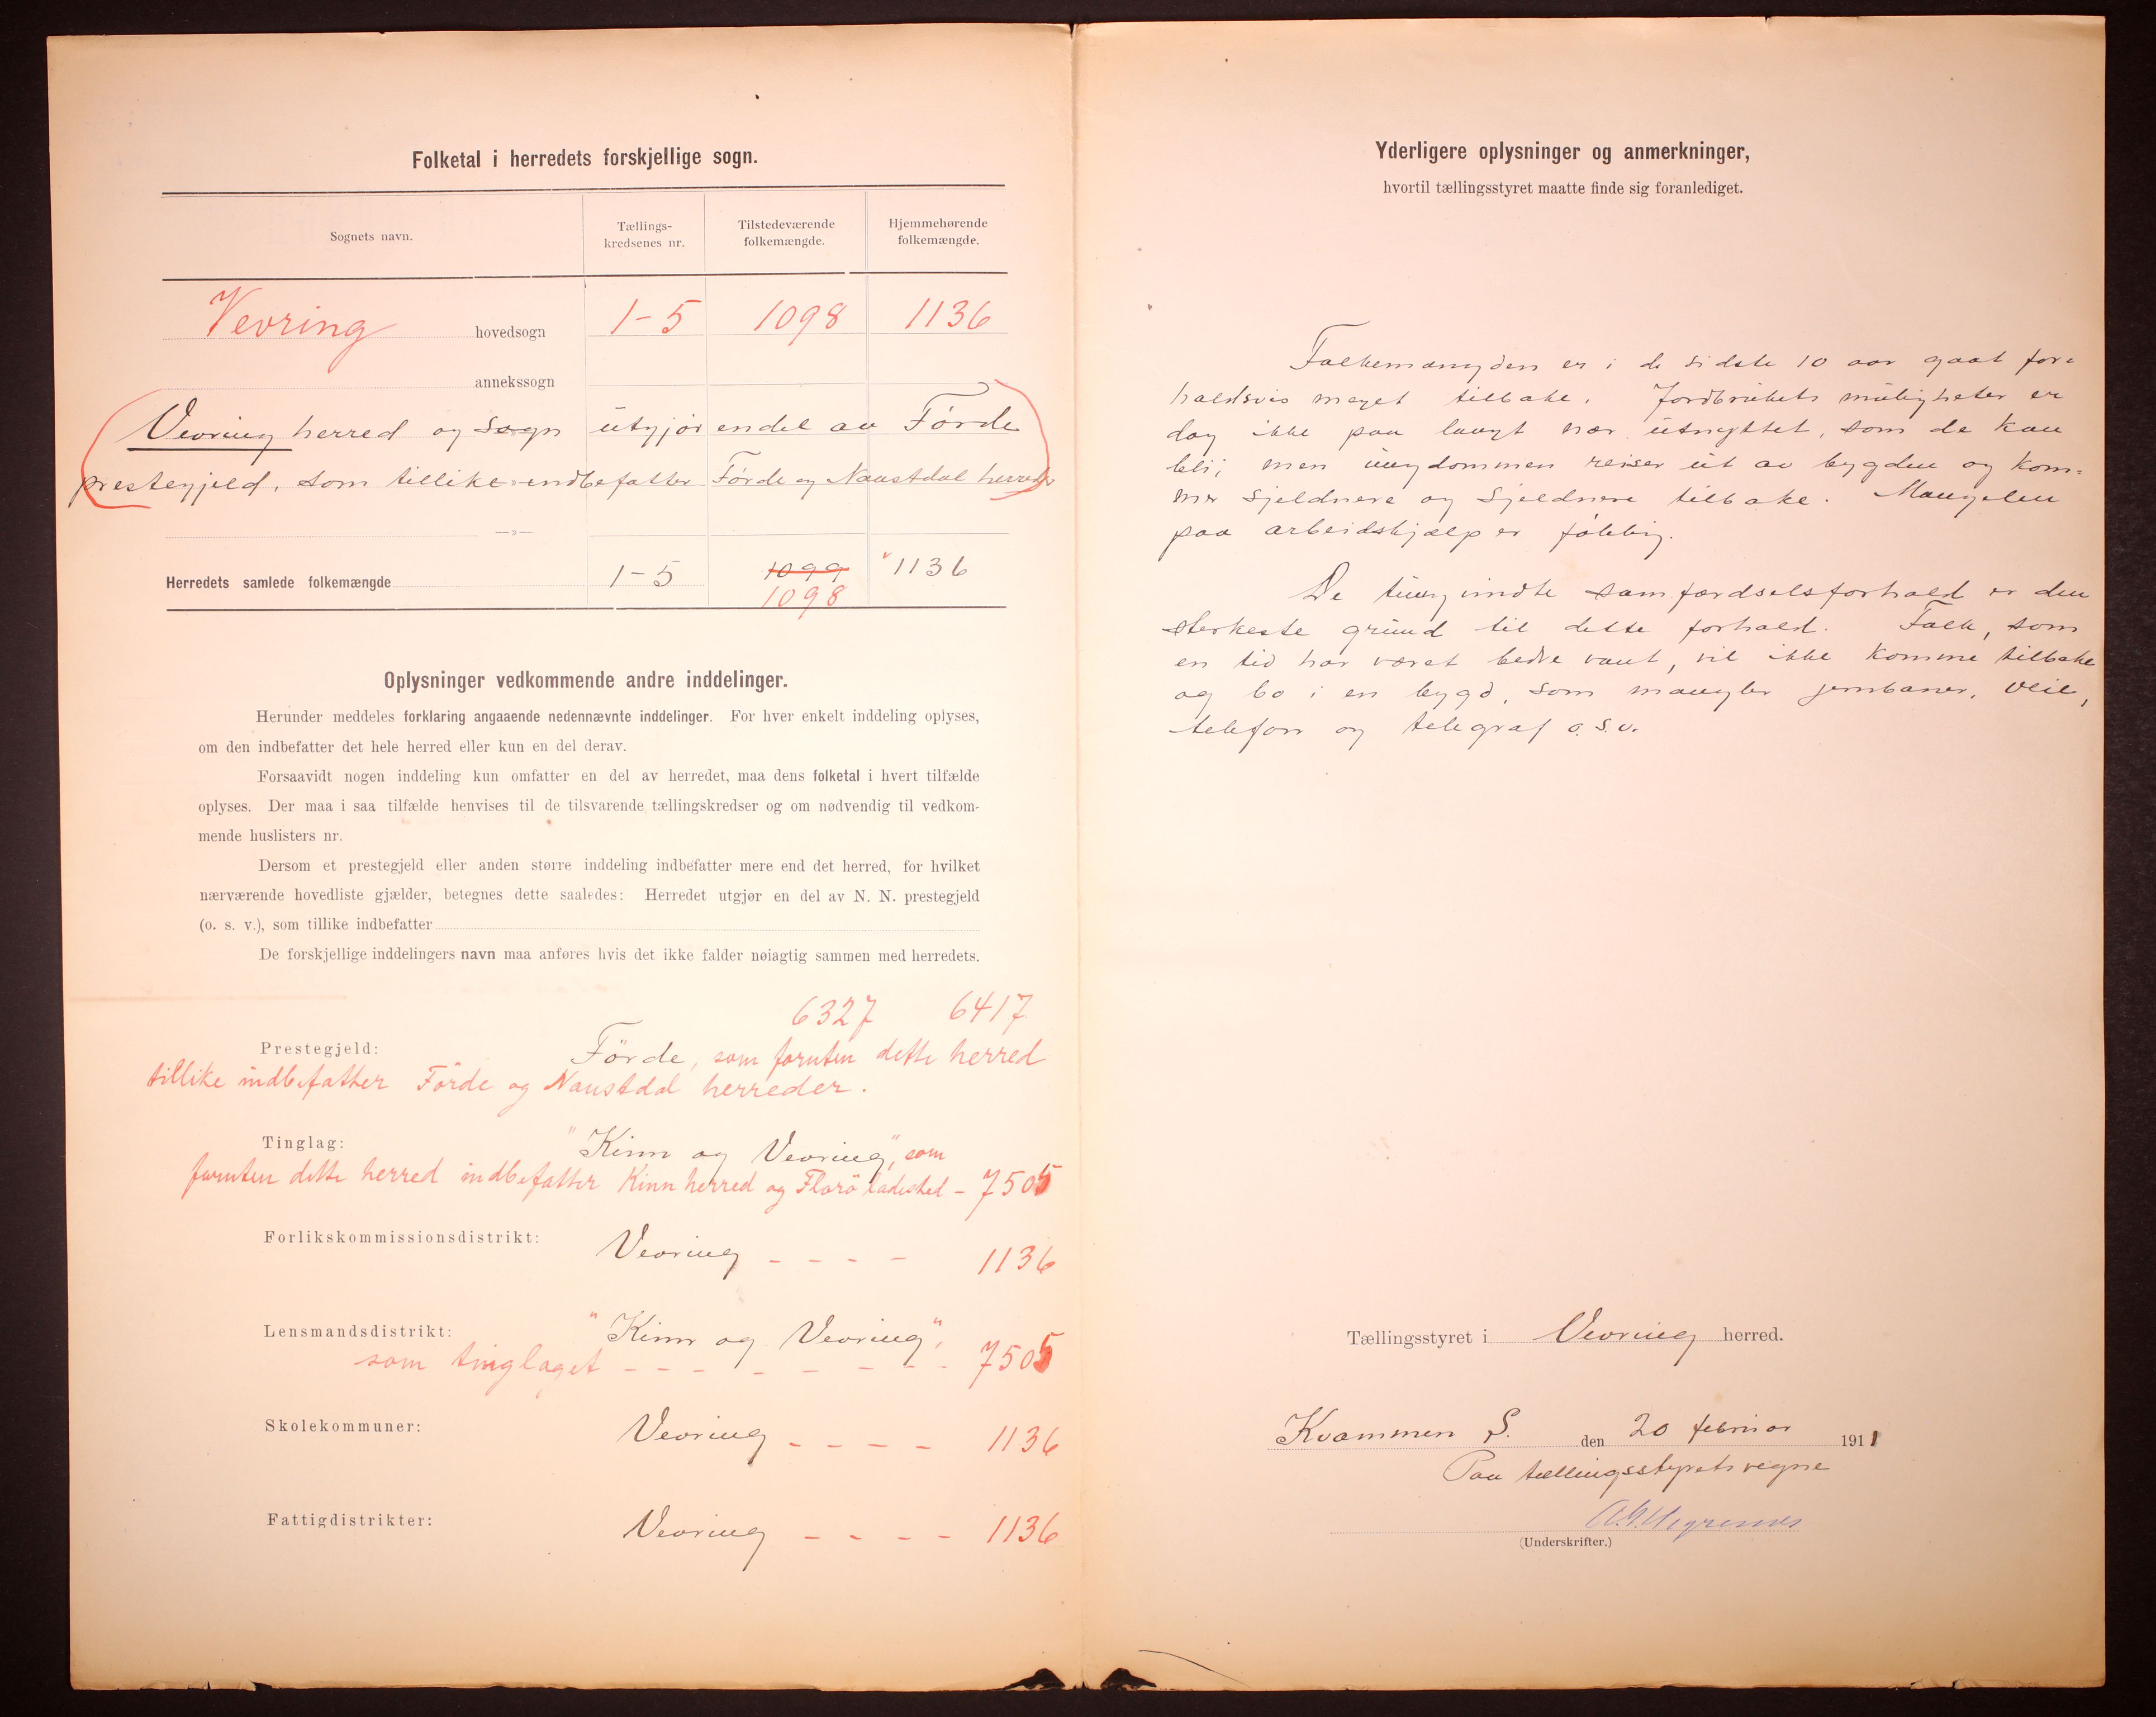 Folketal i herredets forskjellige sogn.
Sognets navn. Tællings-kredsenes nr. Tilstedeværende folkemængde. Hjemmehørende folkemængde.
Vevring hovedsogn 1-5 1098 1136
annekssogn
Vevring herred og sogn utgjør en del av Førde
prestegjeld, som tillike indbefatter Førde og Naustdal herreder
—»—
Herredets samlede folkemængde 1-5 1099 1136
1098
Oplysninger vedkommende andre inddelinger.
Herunder meddeles forklaring angaaende nedennævnte inddelinger. For hver enkelt inddeling oplyses,
om den indbefatter det hele herred eller kun en del derav.
Forsaavidt nogen inddeling kun omfatter en del av herredet, maa dens folketal i hvert tilfælde
oplyses. Der maa i saa tilfælde henvises til de tilsvarende tællingskredser og om nødvendig til vedkom-
mende huslisters nr.
Dersom et prestegjeld eller anden større inddeling indbefatter mere end det herred, for hvilket
nærværende hovedliste gjælder, betegnes dette saaledes: Herredet utgjør en del av N. N. prestegjeld
(o. s. v.), som tillike indbefatter
De forskjellige inddelingers navn maa anføres hvis det ikke falder nøiagtig sammen med herredets.
6327 6417
Prestegjeld: Förde, som foruten dette herred
tillike indbefatter Förde og Naustdal herreder.
Tinglag: "Kinn og Vevring", som
foruten dette herred indbefatter Kinn herred og Florö ladested - 7505
Forlikskommissionsdistrikt: Vevring - - - - 1136
Lensmandsdistrikt: "Kinn og Vevring",
som tinglaget - - - - - - - - 7505
Skolekommuner: Vevring - - - - 1136
Fattigdistrikter: Vevring - - - - 1136
Yderligere oplysninger og anmerkninger,
hvortil tællingsstyret maatte finde sig foranlediget.
Folkemængden er i de sidste 10 aar gaat for-
holdsvis meget tilbake. Jordbrukets muligheter er
dog ikke paa langt nær utnyttet, som de kan
bli; men ungdommen reiser ut av bygden og kom-
mer sjeldnere og sjeldnere tilbake. Mangelen
paa arbeidshjælp er følelig.
De tungvindte samfærdselsforhold er den
sterkeste grund til dette forhold. Folk, som
en tid har været bedre vant, vil ikke komme tilbake
og bo i en bygd, som mangler jernbaner, veie,
telefon og telegraf o.s.v.
Tællingsstyret i Vevring herred.
Kvammen S. den 20 februar 1911
Paa tællingsstyrets vegne
(Underskrifter.)